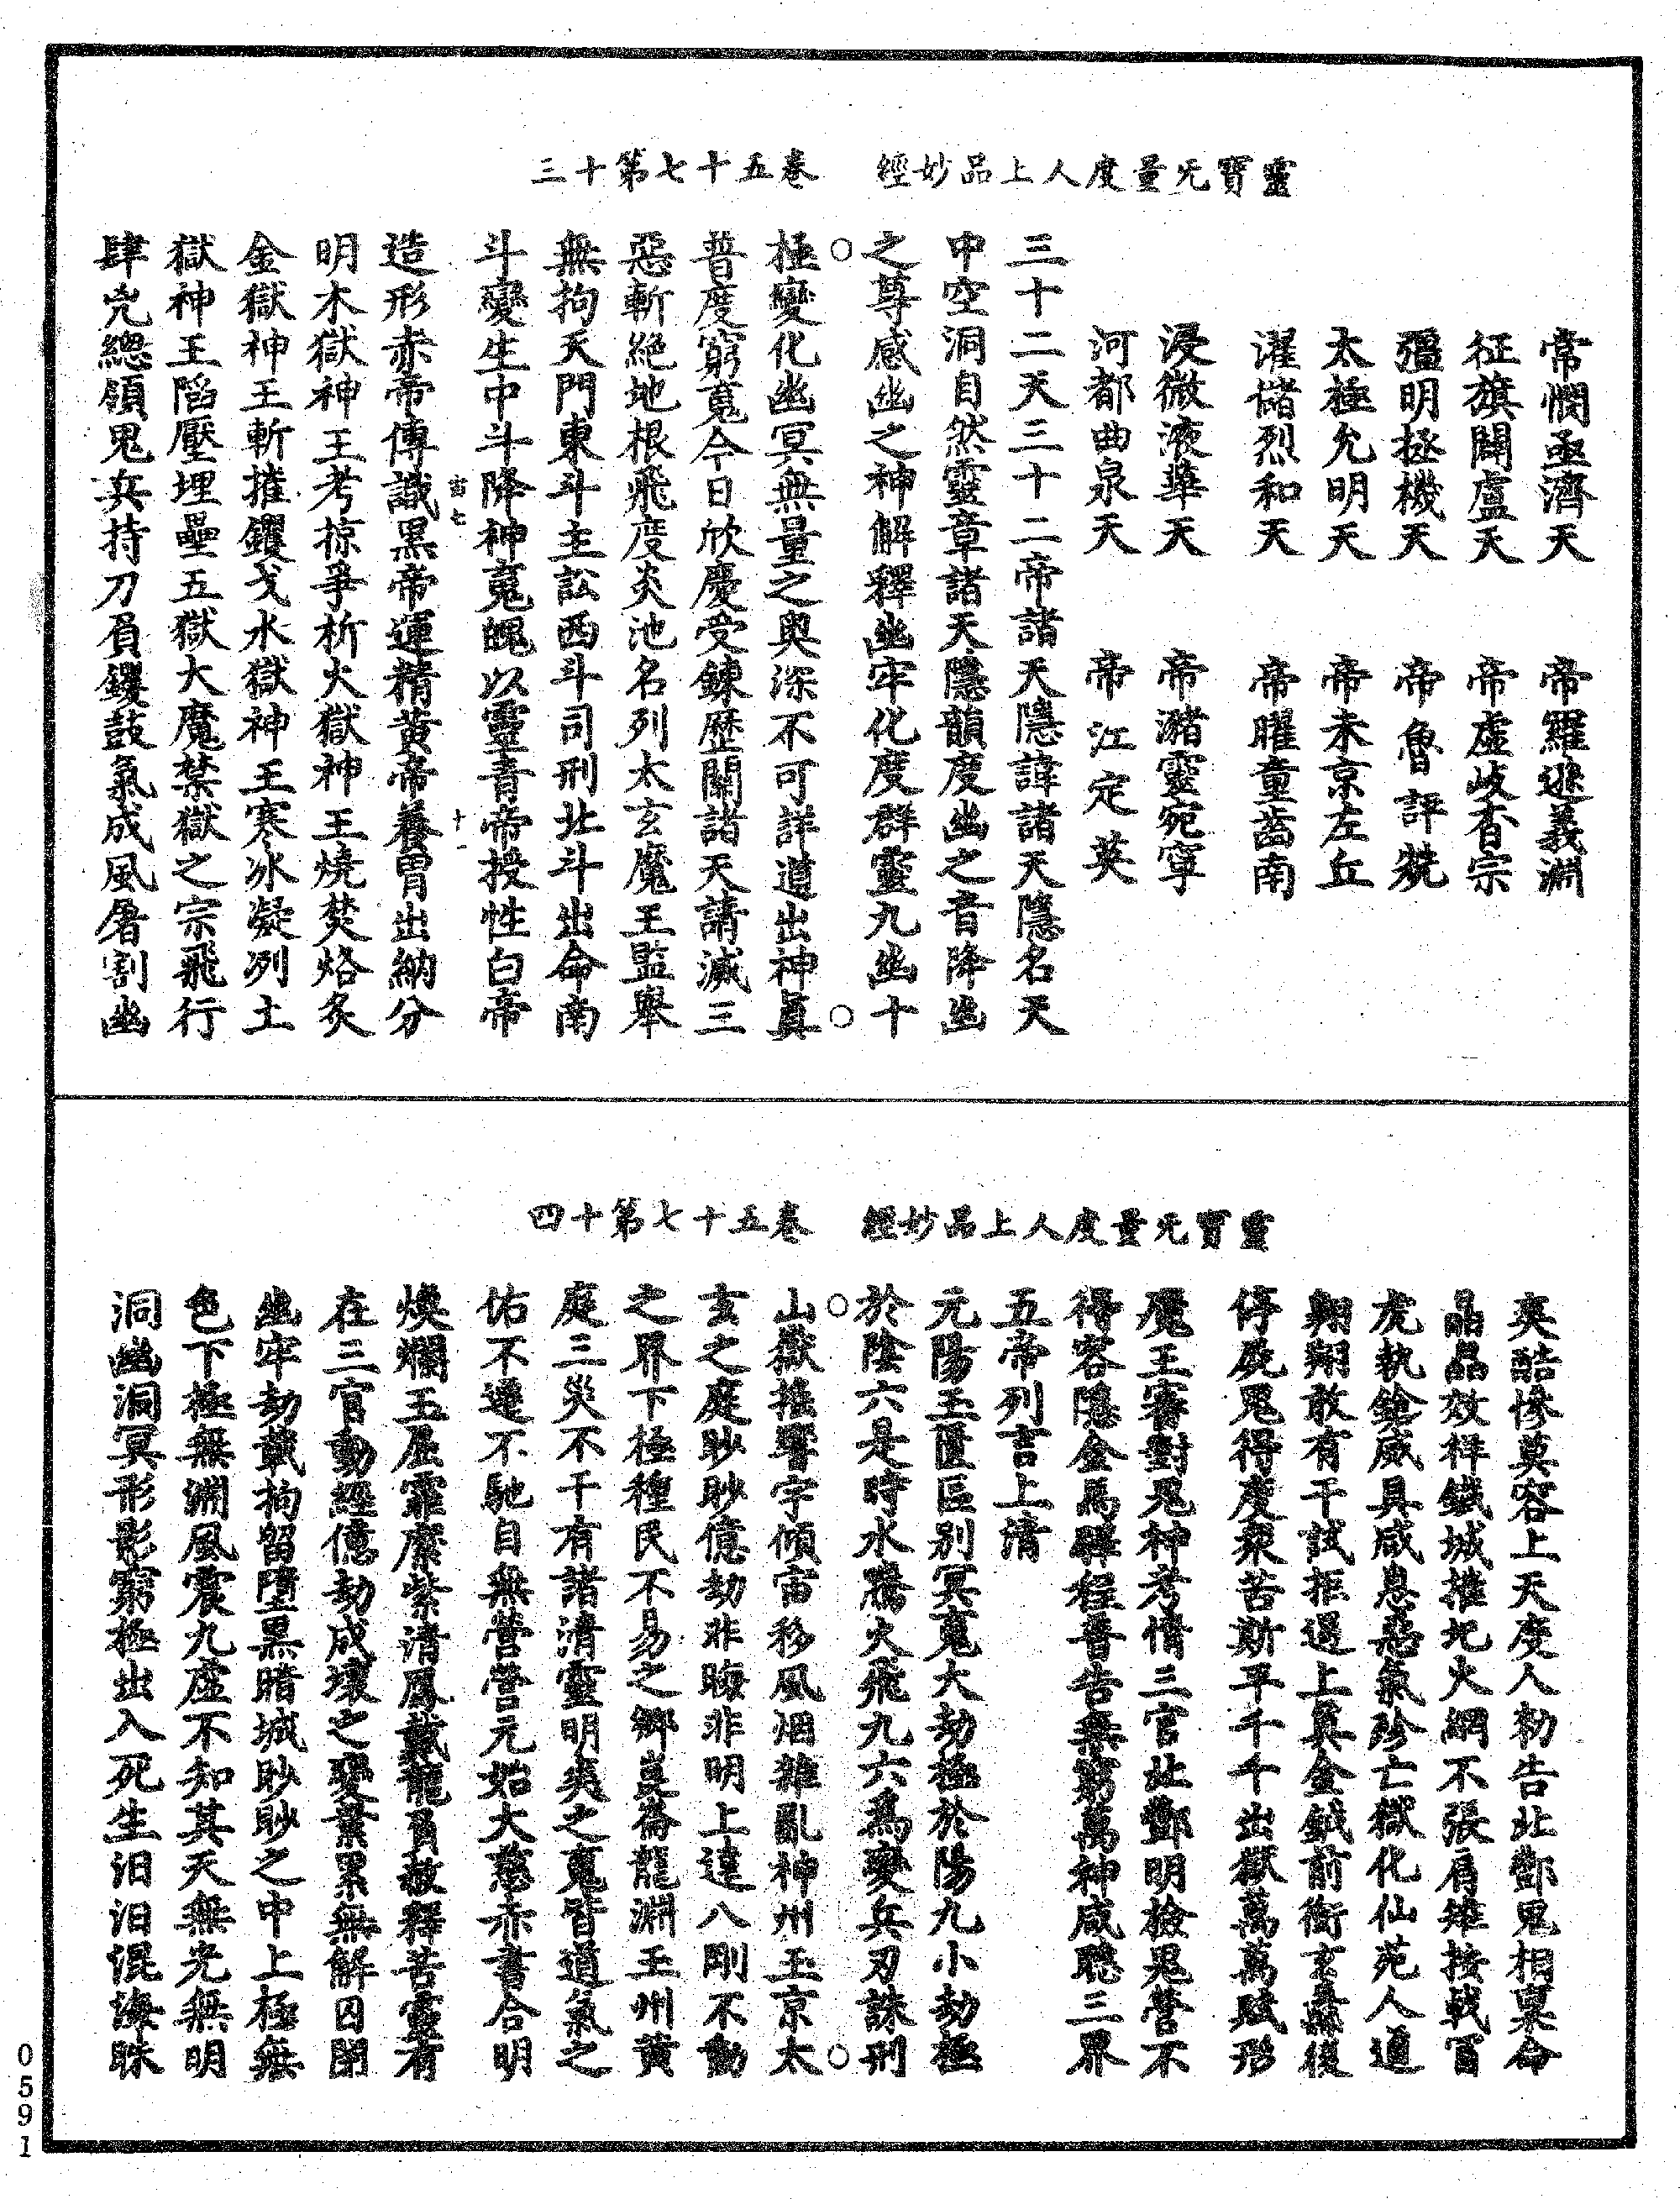 靈寶无量度人上品妙經　卷五十七第十三
常憫亟濟天　帝羅遜義淵
征旗闢盧天　帝虛岐香宗
彊明拯機天　帝魯評兟
太極允明天　帝未京左丘
濯儲烈和天　帝曜童齒南
浸微液華天　帝瀦靈宛寧
河都曲泉天　帝江定英
三十二天三十二帝諸天隱諱諸天隱名天
中空洞自然靈章諸天隱韻度幽之音降幽
之尊感幽之神解釋幽牢化度群靈九幽十
極變化幽冥無量之奧深不可詳道出神眞
普度窮䰟今日欣慶受鍊歷關諸天請滅三
惡斬絶地根飛度炎池名列太玄魔王監舉
無拘天門東斗主訟西斗司刑北斗出命南
斗變生中斗降神䰟魄以靈青帝授性白帝
造形赤帝傳識黑帝運精黄帝養胃出納分
明木獄神王考掠爭析火獄神王燒焚烙炙
金獄神王斬摧钁戈水獄神王寒冰凝冽土
獄神王䧟壓埋壘五獄大魔禁獄之宗飛行
肆兇緫領鬼兵持刀負钁鼓氣成風屠割幽
十一
靈寶无量度人上品妙經　卷五十七第十四
爽酷慘莫容上天度人勑告北酆鬼相稟命
晶晶效祥鐵城摧圯火網不張肩雉按戟
虎執鎗威具咸息惡氣殄亡獄化仙苑人道
翱翔敢有干試拒遏上真金鉞前衝玄蠡後
停屍鬼得度衆苦斯平千千出獄萬萬賦形
魔王審對鬼神考情三官北酆明檢鬼營不
得容隱金馬驛程普告無窮萬神咸聽三界
五帝列言上清
元陽玉匱區别冥䰟大劫極於陽九小劫極
於陰六是時水騰火飛九六爲變兵刃誅刑
山嶽摧響宇傾宙移風烟雜亂神州玉京太
玄之庭眇眇億劫非晦非明上達八剛不動
之界下極種民不易之鄉崑崙龍淵王州黄
庭三災不干有諸清靈明爽之䰟皆道氣之
佑不遷不馳自無營營元始大慈赤書合明
煥爛玉屈霏縻紫清鳳載龍負救釋苦靈有
在三官動經億劫成壞之變業累無解囚閉
幽牢劫載拘留墮黑暗城眇眇之中上極無
色下極無淵風震九虛不知其天無光無明
洞幽洞冥形影窮極出入死生汨汨混海昧
0591